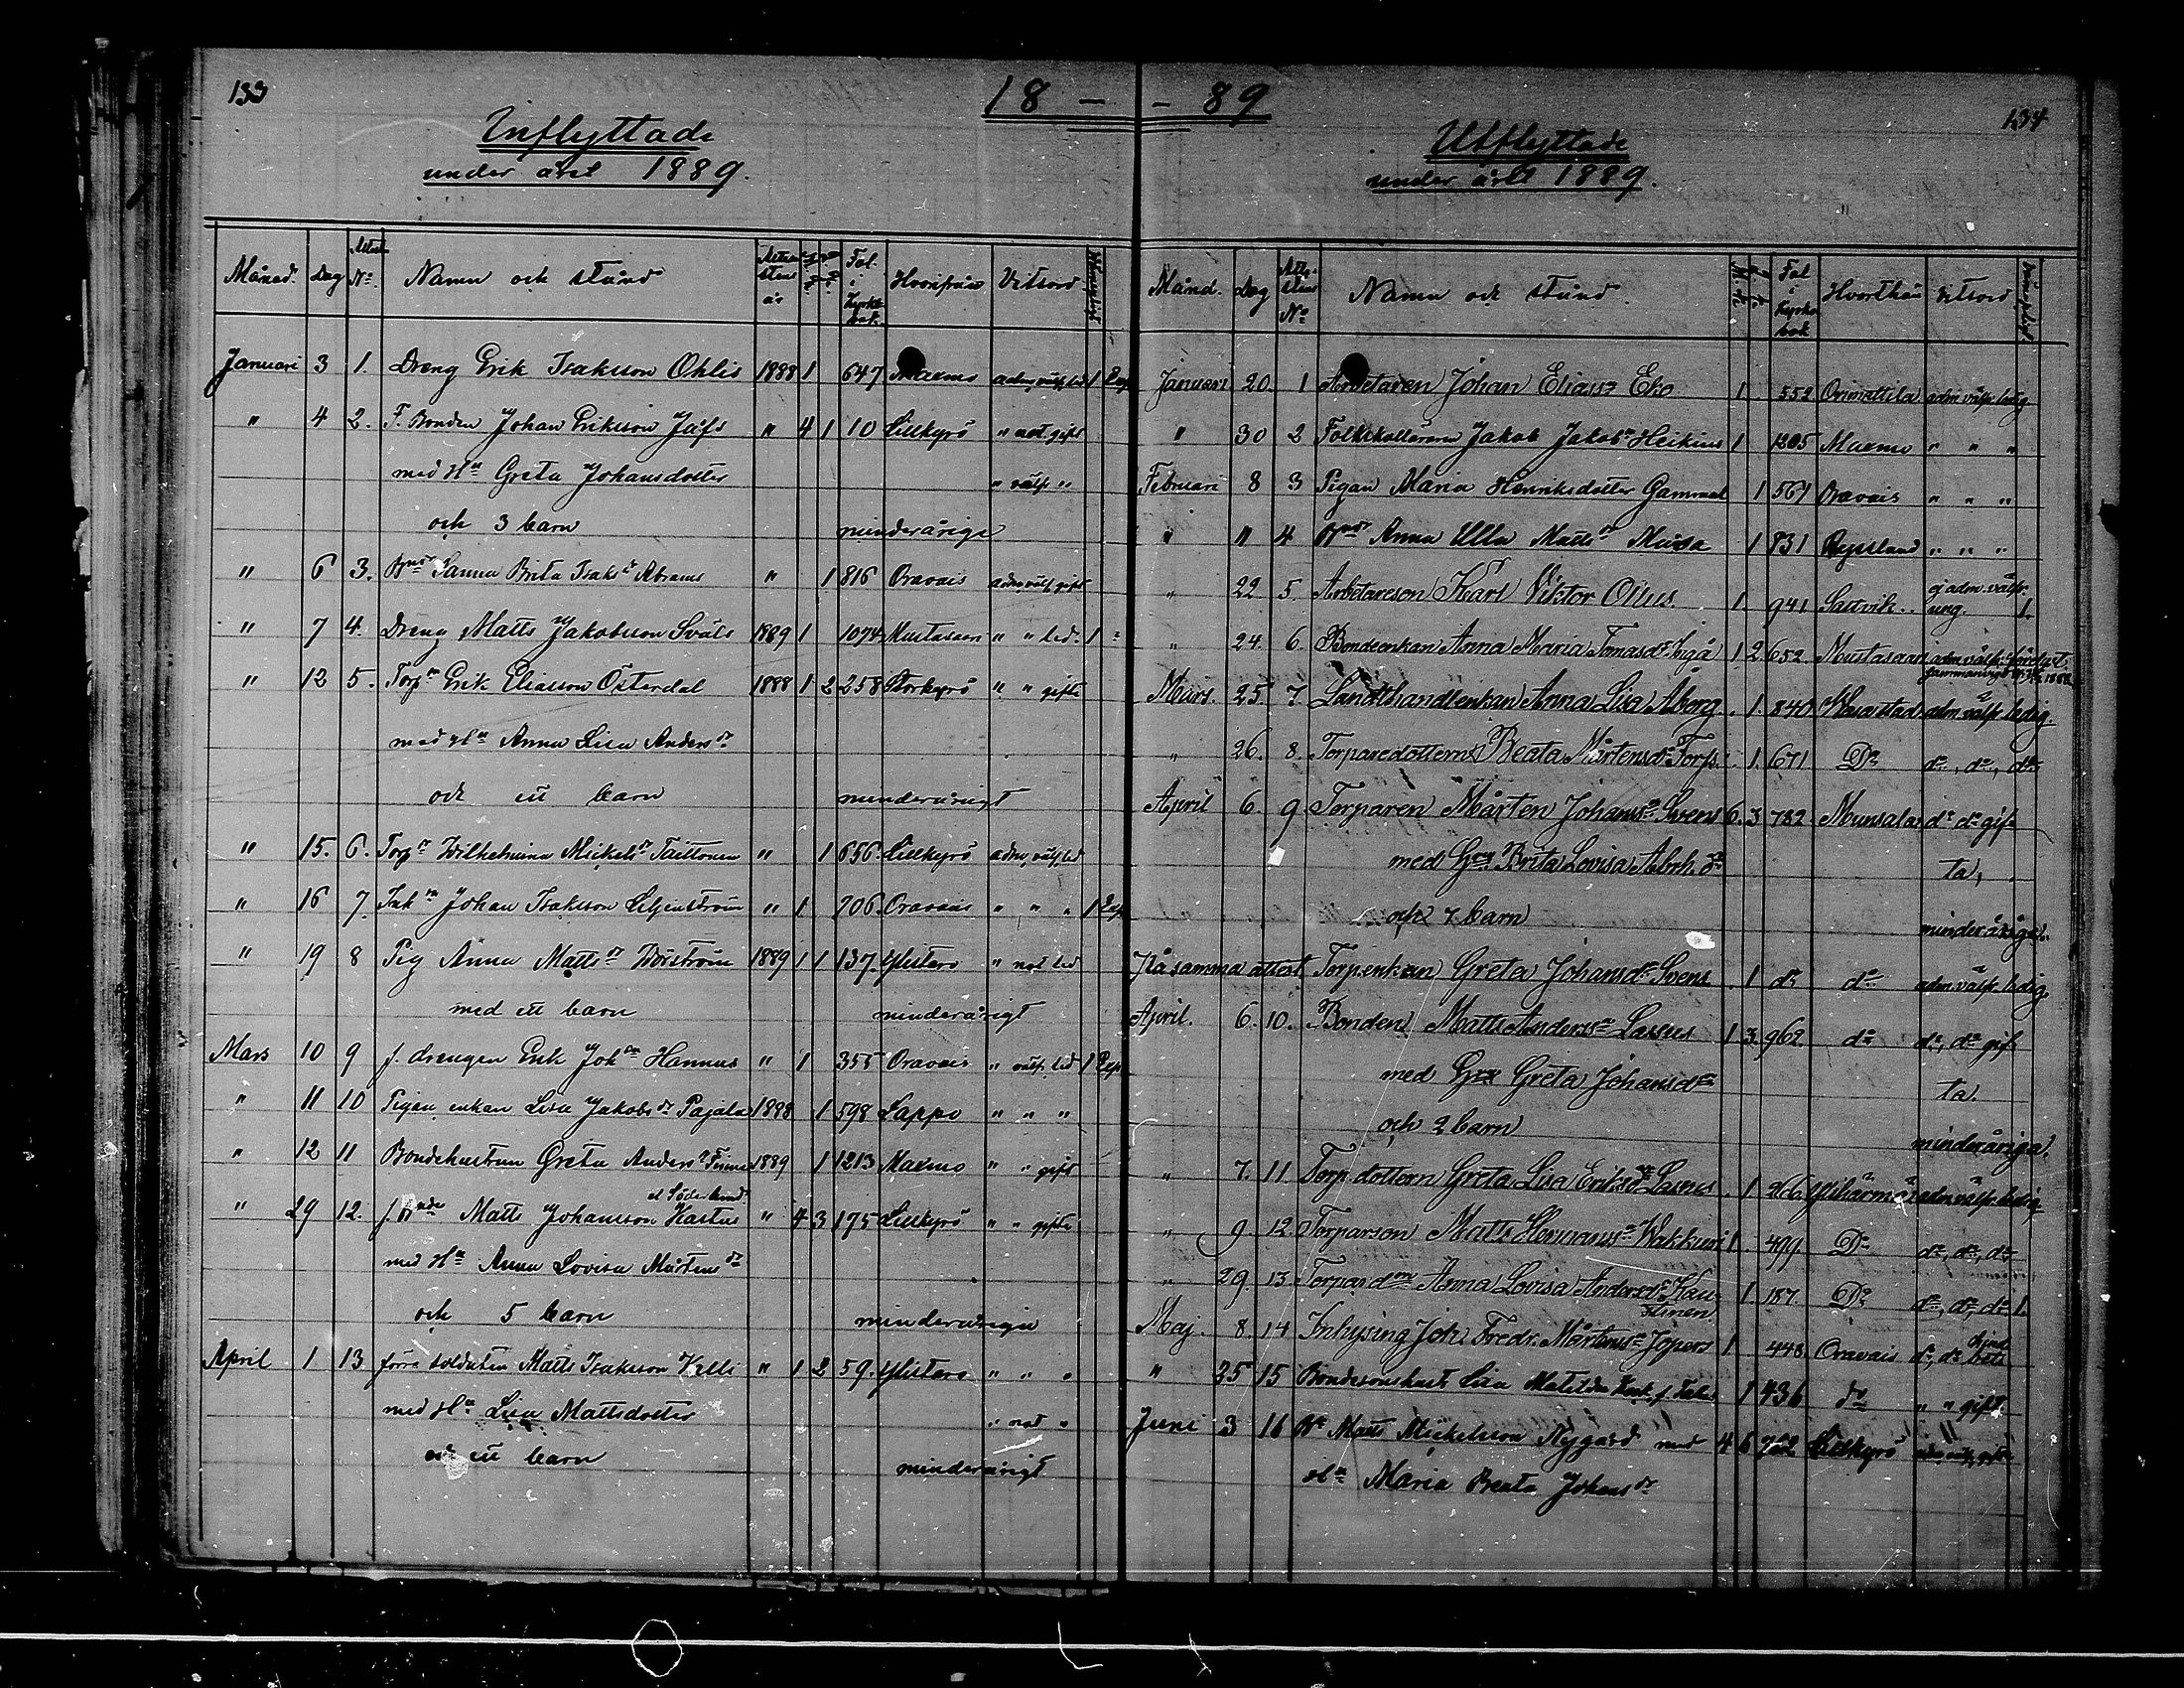 133
18 - - 89
134
Inflyttade
under året 1889.
Månad. Dag No. Namn och stånd Fol. i Kyrkobok. Hvarifrån Vitsord
Januari 3 1. Dreng Erik Isaksson Ohlis 1888 1 647 Maxmo adm, välf. led 1
" 4 2. F. Bonden Johan Eriksson Jåfs " 4 1 10 Lillkyrö " nat gift
med Hu Greta Johansdotter " välf "
och 3 barn minderåriga
" 6 3. Sanna Brita Isaksdr Abrams " 1 816 Oravais adm, välf, gift
" 7 4. Dreng Matts Jakobsson Svåls 1889 1 1074 Mustasaari " " led. 1 "
" 12 5. Torpn Erik Eliasson Österdal 1888 1 2 258 Storkyrö " " gifte
med Hu Anna Lisa Andersdr
och ett barn minderårigt
" 15. 6. Wilhelmina Mickelsdr Taittonen " 1 656 Lillkyrö adm, välf led
" 16 7. Johan Isaksson Liljeström " 1 706 Oravais " " " 1 Exp
" 19 8 Pig Anna Mattsdr 1889 1 1 137. Ylistaro " nat led
med ett barn minderårigt
Mars 10 9 f. drengen Erik Johan Hannus " 1 355 Oravais " välf. led 1 Exp
" 11 10 Pigan enkan Lisa Jakobsdr Pajala 1888 1 598 Lappo " " "
" 12 11 Bondehustrun Greta Andersdr Finne 1889 1 1213 Maxmo " " gift
" 29 12. f. Matts Johansson Kastus el Söderlund " 4 3 175 Lillkyrö " " gifte
med Hu Anna Lovisa Mårtensdr
och 5 barn minderåriga
April 1 13 förra soldaten Matts Isaksson Kelli " 1 2 59. Ylistaro " " "
med Hu Lisa Mattsdotter " nat "
och ett barn minderårigt
Utflyttade
under året 1889.
Månd. dag No Namn och stånd. Fol i Kyrko bok Hvarthän vitsord
Januari 20. 1 Arbetaren Johan Eliasson Eko 1. 552 Orimattila adm välf. ledig
" 30 2 Folkskolläraren Jakob Jakobsn Heikius 1 1205 Maxmo " " "
Februari 8 3 Pigan Maria Henriksdotter Gammal 1 561 Oravais " " "
" 11 4 Anna Ulla Mattsdr Musa 1 831 Ryssland " " "
" 22. 5. Arbetareson Karl Viktor Ollus. 1. 941 ej adm. välfr. ung. 1.
" 24. 6. Bondeenkan Anna Maria Tomasdr 1 2. 652. Mustasaari adm välfr.
Mars. 25. 7. Landthandlenkan Anna Lisa Åborg . 1. 840 Wasa stad adm välfr ledig.
" 26. 8. Torparedottern Beata Mårtensdr Forss. . 1. 671 Do do, do, do
April 6. 9 Torparen Mårten Johanssn Svens 6. 3 782 Munsala do do gif-
med Hu Brita Lovisa Abrh. dr ta,
och 7 barn minderåriga.
På samma attest Torpenkan Greta Johansdr Svens . 1 do do adm. välfr. ledig.
April. 6. 10. Bonden Matts Anderssn Lassus 1 3. 962 do do, do gif
med Hu Greta Johansdr ta.
och 2 barn minderåriga.
" 7. 11 Torp. dottern Greta Lisa Eriksdr Lassus . 1 966 Ylihärmä adm. välfr. ledig
" 9. 12. Torparson Matts Hermanssn Wakkuri 1. 499. Do do, do, do
" 29. 13. Torpard. Anna Lovisa Andersdr Kau-
ttinen . 1. 187. Do do, do, do 1.
Maj. 8. 14 Inhysing Joh. Fredr. Mårtenssn Jopers 1 448 Oravais do, do
" 25 15 Bondesonshust. Lisa Matilda 1 436 do " " gift.
Juni 3 16 Matts Mickelsson Nygård med 4 6 762 Lillkyrö
Hu Maria Beata Johansdr